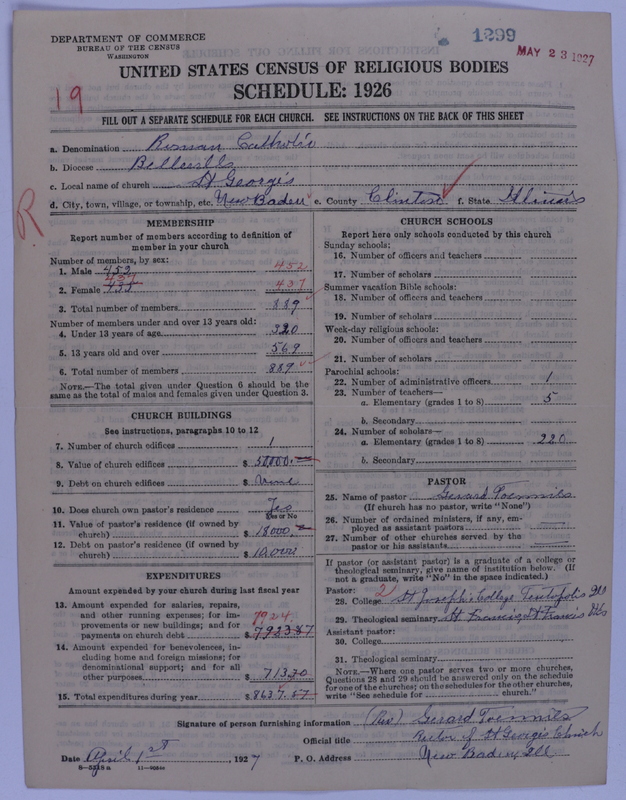 DEPARTMENT OF COMMERCE
BUREAU OF THE CENSUS
WASHINGTON
1299
MAY 23 1927
UNITED STATES CENSUS OF RELIGIOUS BODIES
SCHEDULE: 1926
19
FILL OUT A SEPARATE SCHEDULE FOR EACH CHURCH. SEE INSTRUCTIONS ON THE BACK OF THIS SHEET
a. Denomination Roman Catholic
b. Diocese Belleville
c. Local name of church St George's
d. City, town, village, or township, etc. New Baden e. County Clinton f. State Illinois
R
MEMBERSHIP
Report number of members according to definition of member in your church
Number of members, by sex:
1. Male 452 452
2. Female 437 437
3. Total number of members 889
Number of members under and over 13 years old:
4. Under 13 years of age 320
5. 13 years old and over 569
6. Total number of members 889
NOTE.—The total given under Question 6 should be same as the total of males and females given under Question 3.
CHURCH BUILDINGS
See instructions, paragraphs 10 to 12
7. Number of church edifices 1
8. Value of church edifices $ 50,000.
9. Debt on church edifices $ None
10. Does church own pastor's residence Yes
Yes or No
11. Value of pastor's residence (if owned by church) $ 18000.
12. Debt on pastor's residence (if owned by church) $ 10,000
EXPENDITURES
Amount expended by your church during last fiscal year
13. Amount expended for salaries, repairs, and other running expenses; for improvements or new buildings; and for payments on church debt 7924. $ 7923.87
14. Amount expended for benevolences, including home and foreign missions; for denominational support; and for all other purposes $ 713.70
15. Total expenditures during year $ 8637.57
CHURCH SCHOOLS
Report here only schools conducted by this church
Sunday schools:
16. Number of officers and teachers
17. Number of scholars
Summer vacation Bible schools:
18. Number of officers and teachers
19. Number of scholars
Week-day religious schools:
20. Number of officers and teachers
21. Number of scholars
Parochial schools:
22. Number of administrative officers 1
23. Number of teachers—
a. Elementary (grades 1 to 8) 5
b. Secondary
24. Number of scholars—
a. Elementary (grades 1 to 8) 220
b. Secondary
PASTOR
25. Name of pastor Gerard Toennies
(If church has no pastor, write "None")
26. Number of ordained ministers, if any, employed as assistant pastors
27. Number of other churches served by the pastor or his assistants
If pastor (or assistant pastor) is a graduate of a college or theological seminary, give name of institution below. (If not a graduate, write "No" in the space indicated.)
Pastor: 2
28. College St Joseph's College Teutopolis Ills
29. Theological seminary St Francis St Francis Wis
Assistant pastor:
30. College
31. Theological seminary
NOTE.—Where one pastor serves two or more churches, Questions 28 and 29 should be answered only on the schedule for one of the churches; on the schedules for the other churches, write "See schedule for church."
Signature of person furnishing information (Rev) Gerard Toennies
Official title Rector of St Georges Church
Date April 1st, 1927 P. O. Address New Baden, Ill
8—5318 a